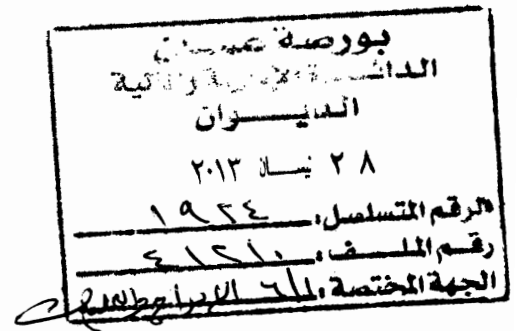 بورصة عمان
الدائرة الإدارية والمالية
الديوان
٢٨ نيسان ٢٠١٣
الرقم المتسلسل: ١٩٢٤
رقم الملف: ٤١٢١٠
الجهة المختصة: